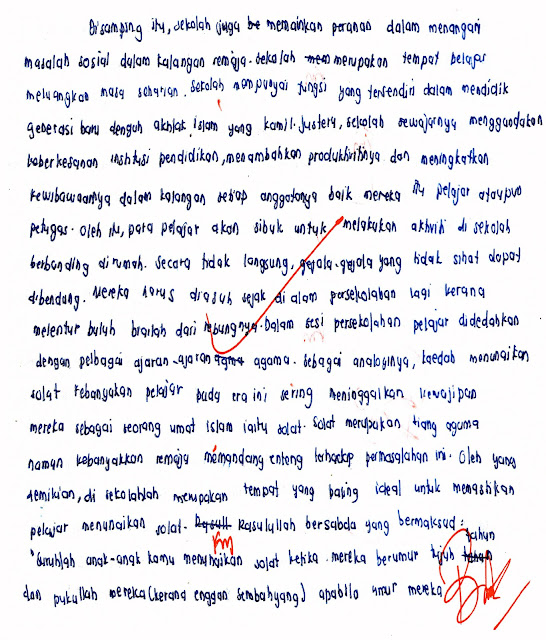 Disamping itu, sekolah juga be memainkan peranan dalam menangani
masalah sosial dalam kalangan remaja. Sekolah mem merupakan tempat pelajar
meluangkan masa seharian. Sekolah mempunyai fungsi yang tersendiri dalam mendidik
generasi baru dengan akhlak islam yang kamil. Justeru, sekolah sewajarnya menggandakan
keberkesanan institusi pendidikan, menambahkan produktivitinya dan meningkatkan
kewibawaannya dalam kalangan setiap anggotanya baik mereka itu pelajar ataupun
petugas. Oleh itu, para pelajar akan sibuk untuk melakukan aktiviti di sekolah
berbanding dirumah. Secara tidak langsung, gejala-gejala yang tidak sihat dapat
dibendung. Mereka harus diasuh sejak di alam persekolahan lagi kerana
melentur buluh biarlah dari rebungnya. Dalam sesi persekolahan pelajar didedahkan
dengan pelbagai ajaran-ajaran agama agama. Sebagai analoginya, kaedah menunaikan
solat kebanyakan pelajar pada era ini sering meninggalkan kewajipan
mereka sebagai seorang umat islam iaitu solat. Solat merupakan tiang agama
namun kebanyakkan remaja memandang enteng terhadap permasalahan ini. Oleh yang
demikian, di sekolahlah merupakan tempat yang paling ideal untuk memastikan
pelajar menunaikan solat. Rasull Rasulullah bersabda yang bermaksud:
"Suruhlah anak-anak kamu menunaikan solat ketika mereka berumur tujuh tahun
dan pukullah mereka (kerana enggan sembahyang) apabila umur mereka